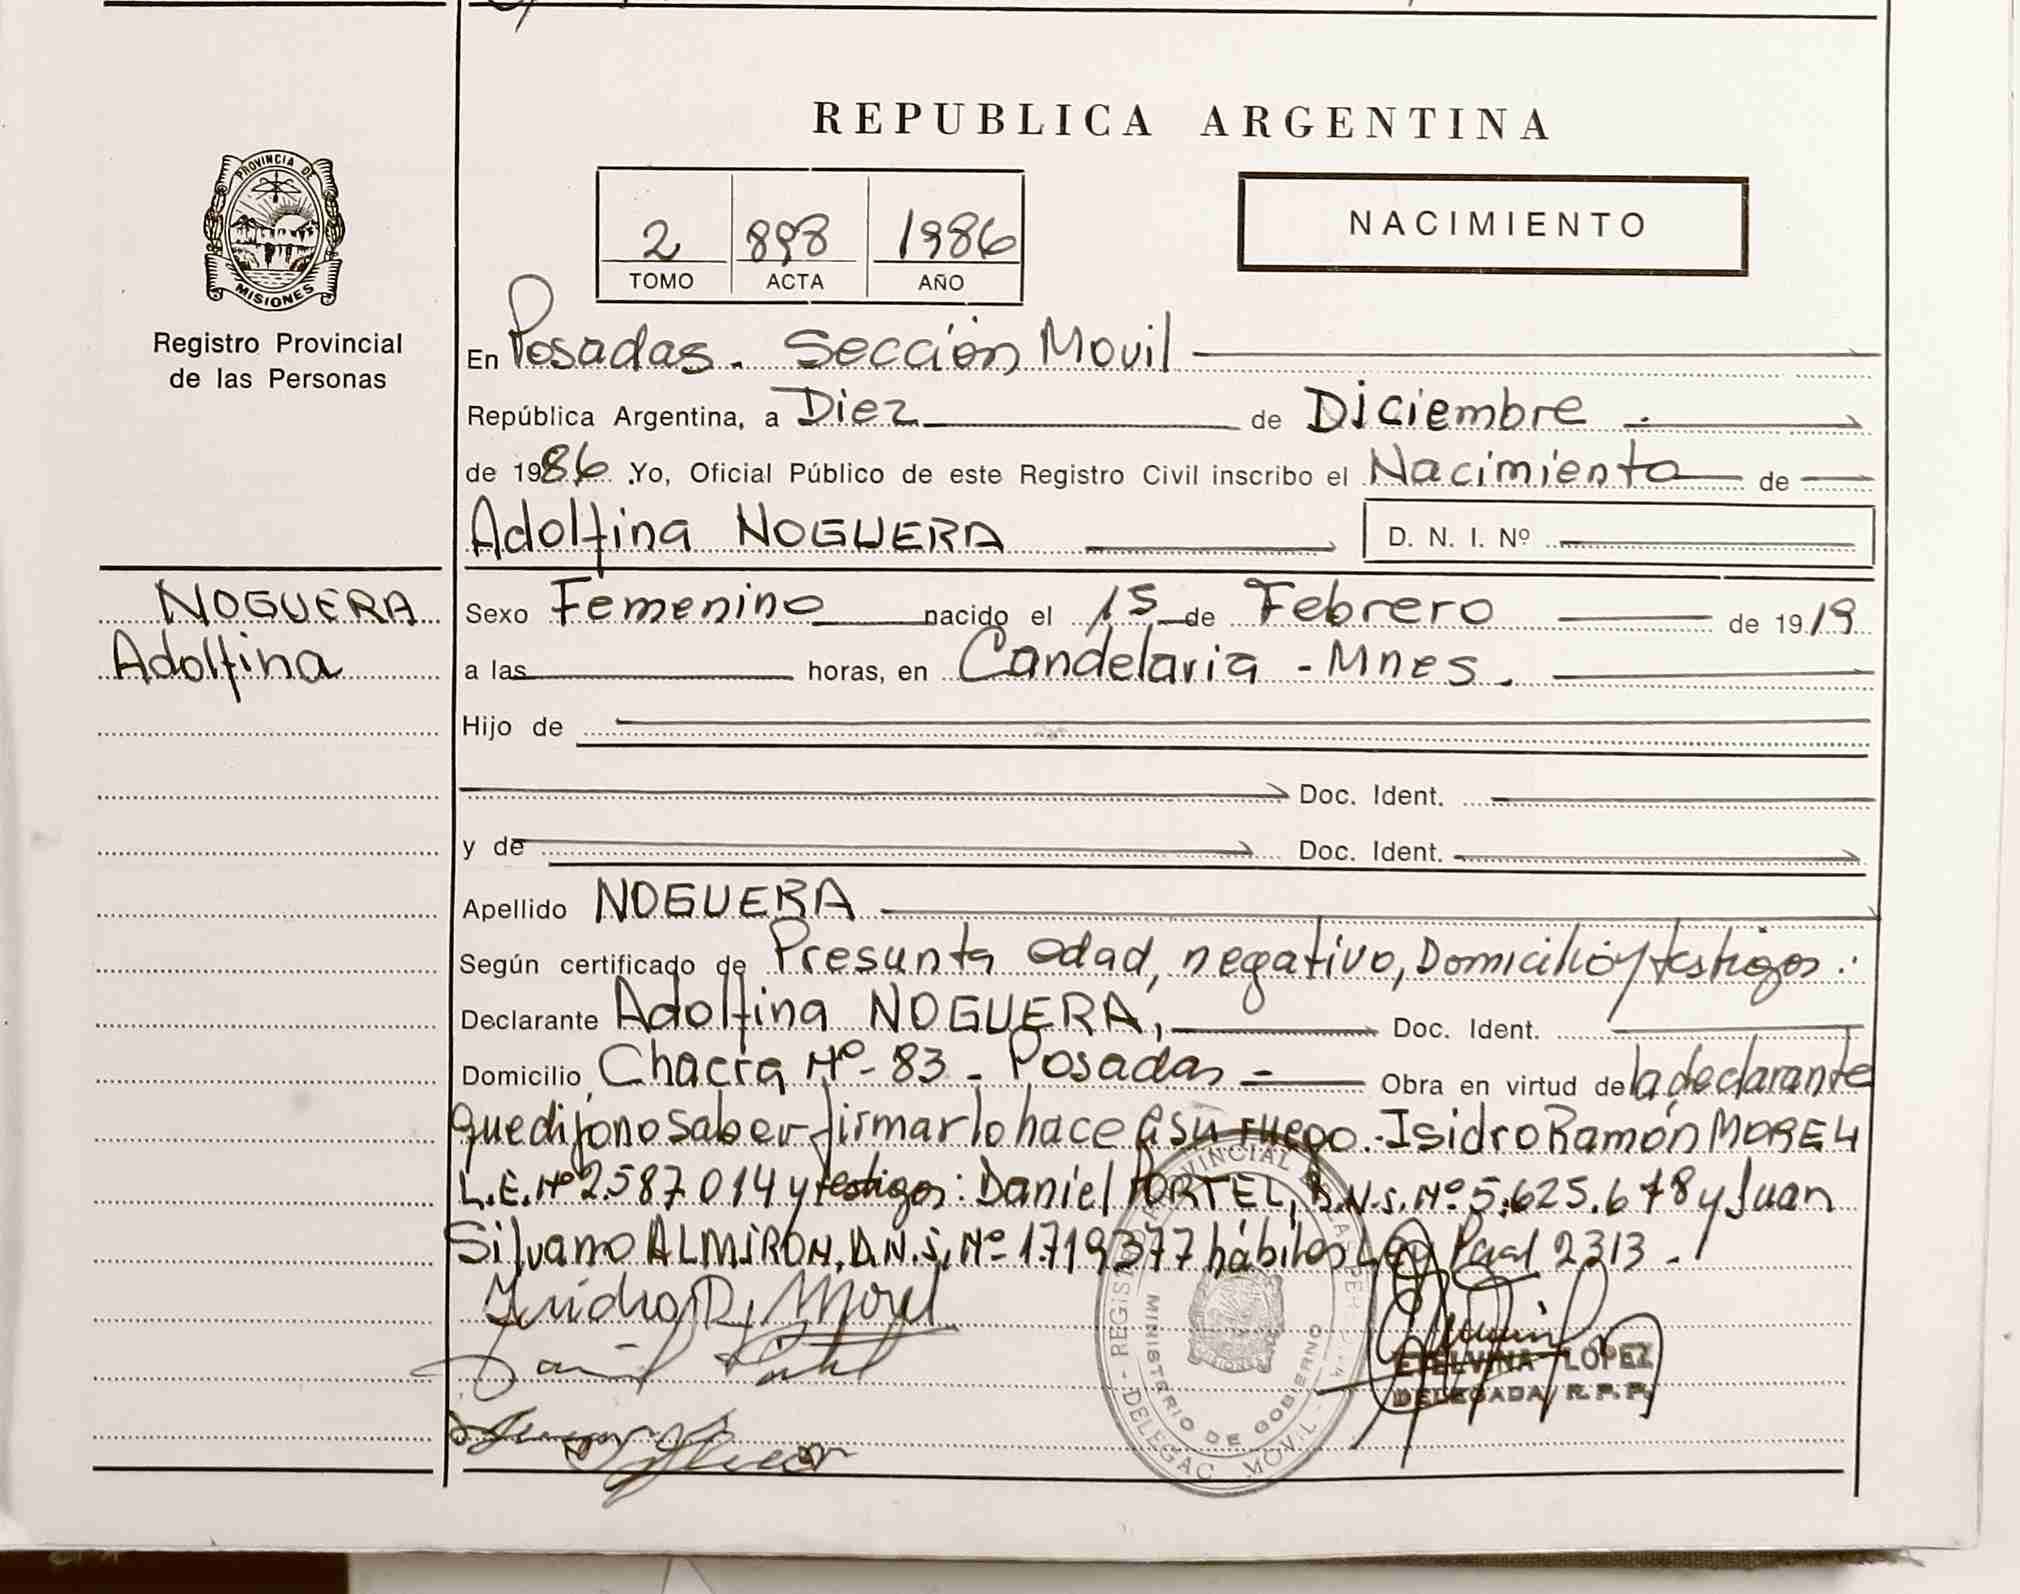 REPUBLICA ARGENTINA
PROVINCIA DE
MISIONES
Registro Provincial
de las Personas
2 898 1986
TOMO ACTA AÑO
NACIMIENTO
En Posadas. Sección Movil
República Argentina, a Diez de Diciembre
de 1986. Yo, Oficial Público de este Registro Civil inscribo el Nacimiento de
Adolfina NOGUERA D. N. I. Nº
NOGUERA
Adolfina
Sexo Femenino nacido el 15 de Febrero de 1919
a las horas, en Candelaria - Mnes.
Hijo de
Doc. Ident.
y de Doc. Ident.
Apellido NOGUERA
Según certificado de Presunta edad, negativo, Domicilio y testigos.
Declarante Adolfina NOGUERA, Doc. Ident.
Domicilio Chacra Nº- 83 - Posadas - Obra en virtud de la declarante
que dijo no saber firmar lo hace a su ruego.- Isidro Ramón MOREL
L.E. Nº 2.587.014 y testigos: Daniel PORTEL, D.N.I. Nº 5.625.678 y Juan
Silvano ALMIRON. D.N.I. Nº 1.719377 hábiles Ley Pcial 2313.
Isidro R. Morel
REGISTRO PROVINCIAL DE LAS PER
MINISTERIO DE GOBIERNO
DELEGAC MOVIL
ETELVINA LOPEZ
DELEGADA R.P.P.